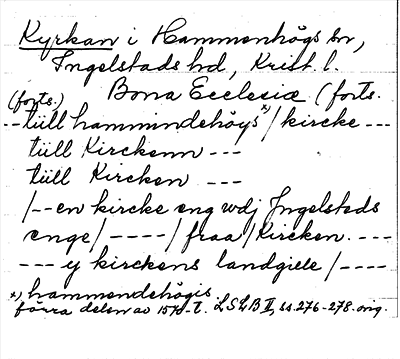 Kyrkan i Hammenhögs sn,
Ingelstads hd, Krist. l.
Bona Ecclesiæ (forts.
(forts.)
-- tüll hammindehöys x) / kircke ---
tüll Kirckenn ---
tüll Kircken ---
/--en kircke eng wdj Ingelsteds
enge / ---- / fraa / Kircken. ----
--- y kirckens landgielle / ----
x) hammendehögis
förra delen av 1570-t. LSLB II, ss. 276-278. orig.